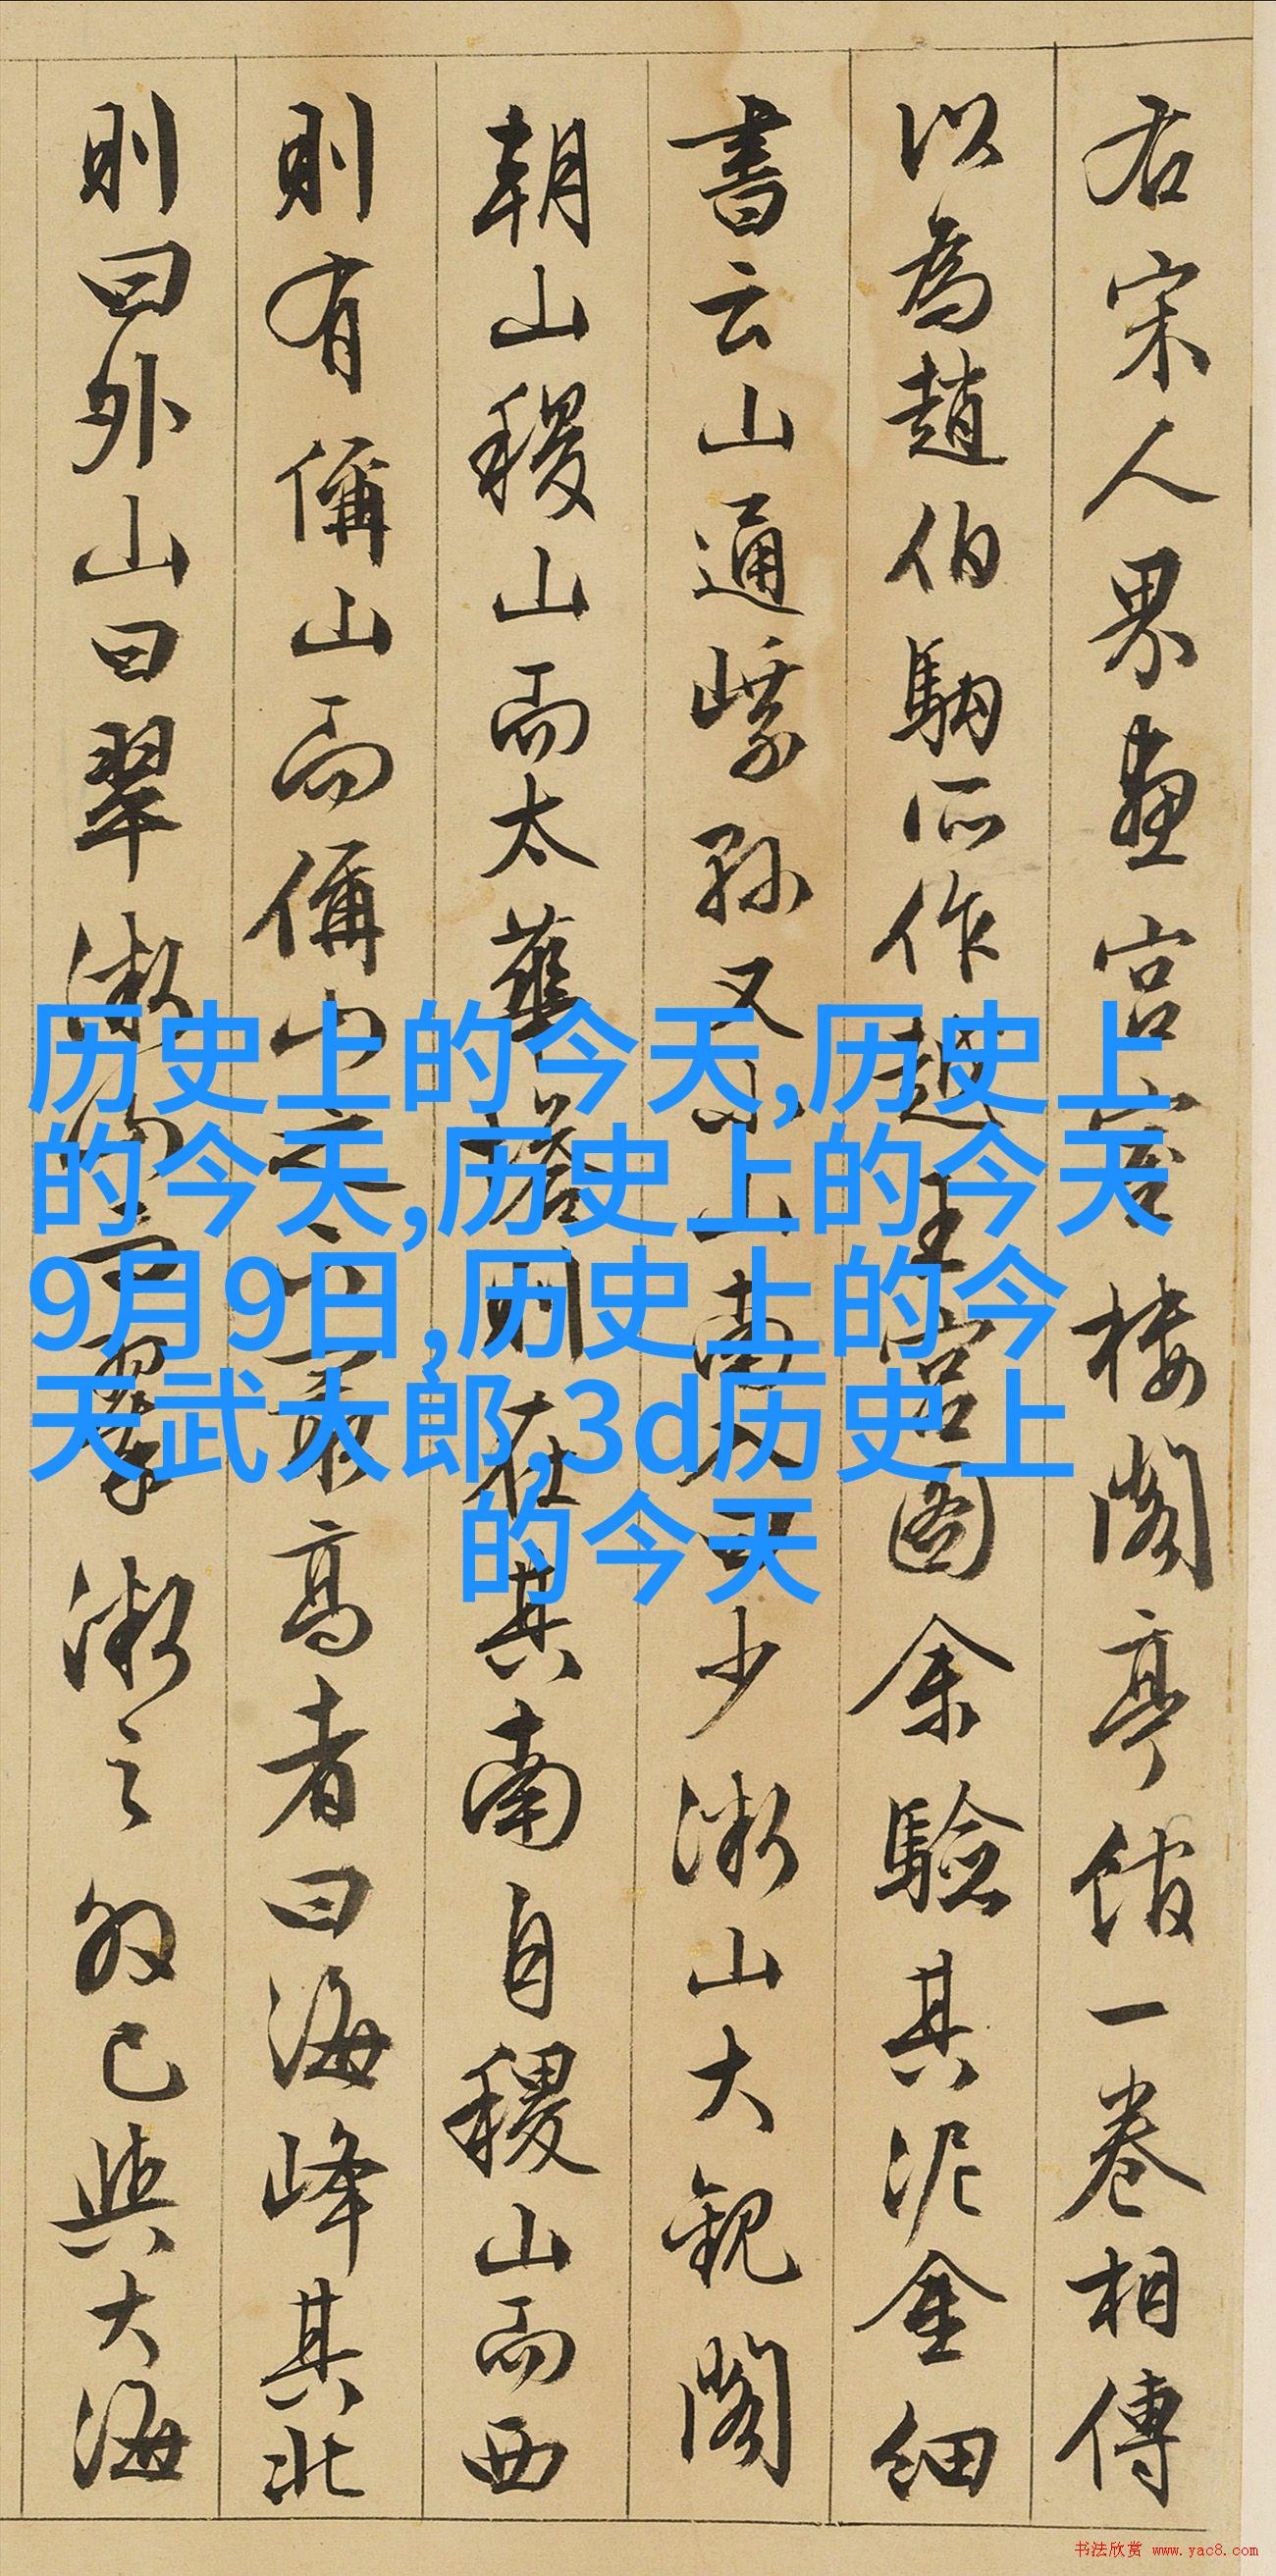 右宋人界畫宮室樓閣亭館一卷相傳
以為趙伯駒所作越王宮圖余驗其泥金細
書云山通 又 山南 少微山大觀閣
朝山稷山而太華 在其南自稷山而西
則有偁山而偁山之 高者曰海峰其北
則曰外山曰翠微 翠微之 已與大海
历史上的今天,历史上
的今天,历史上的今天
9月9日,历史上的今
天武大郎,3d历史上
的今天
书法欣赏 www.yac8.com